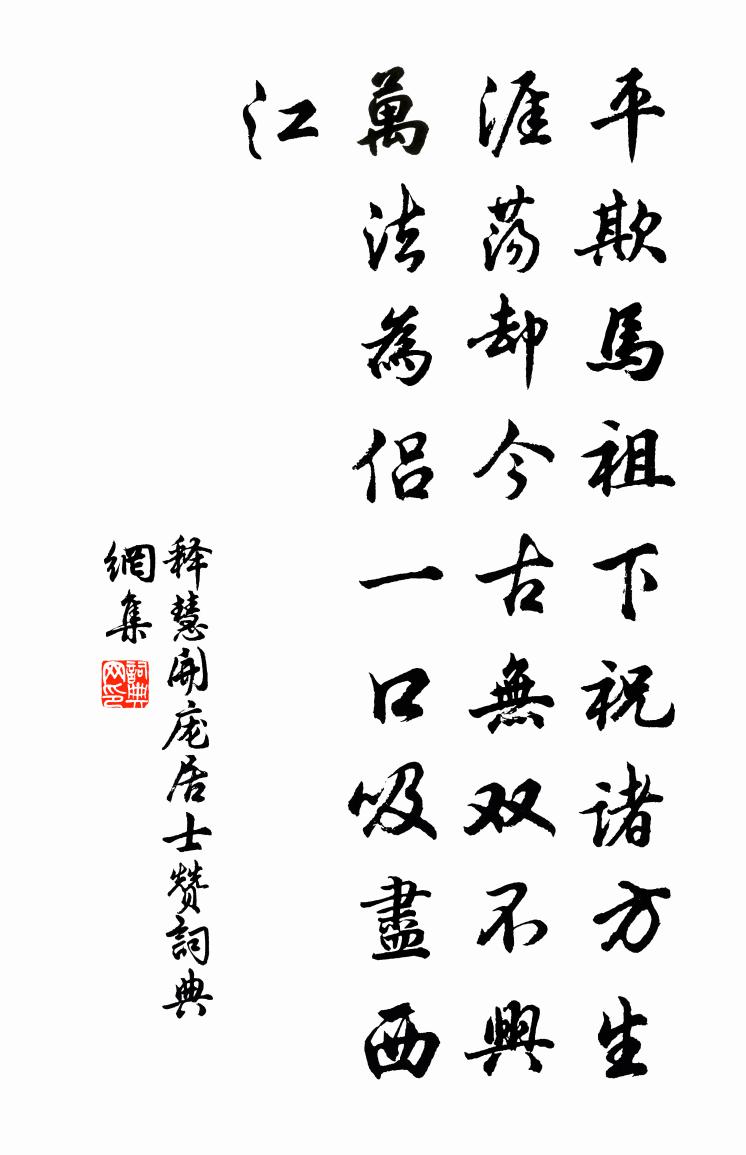 平欺馬祖下視諸方生
涯蕩却今古無双不與
萬法為侶一口吸盡西
江
释慧開庞居士贊詞典
網集
詞典
网印